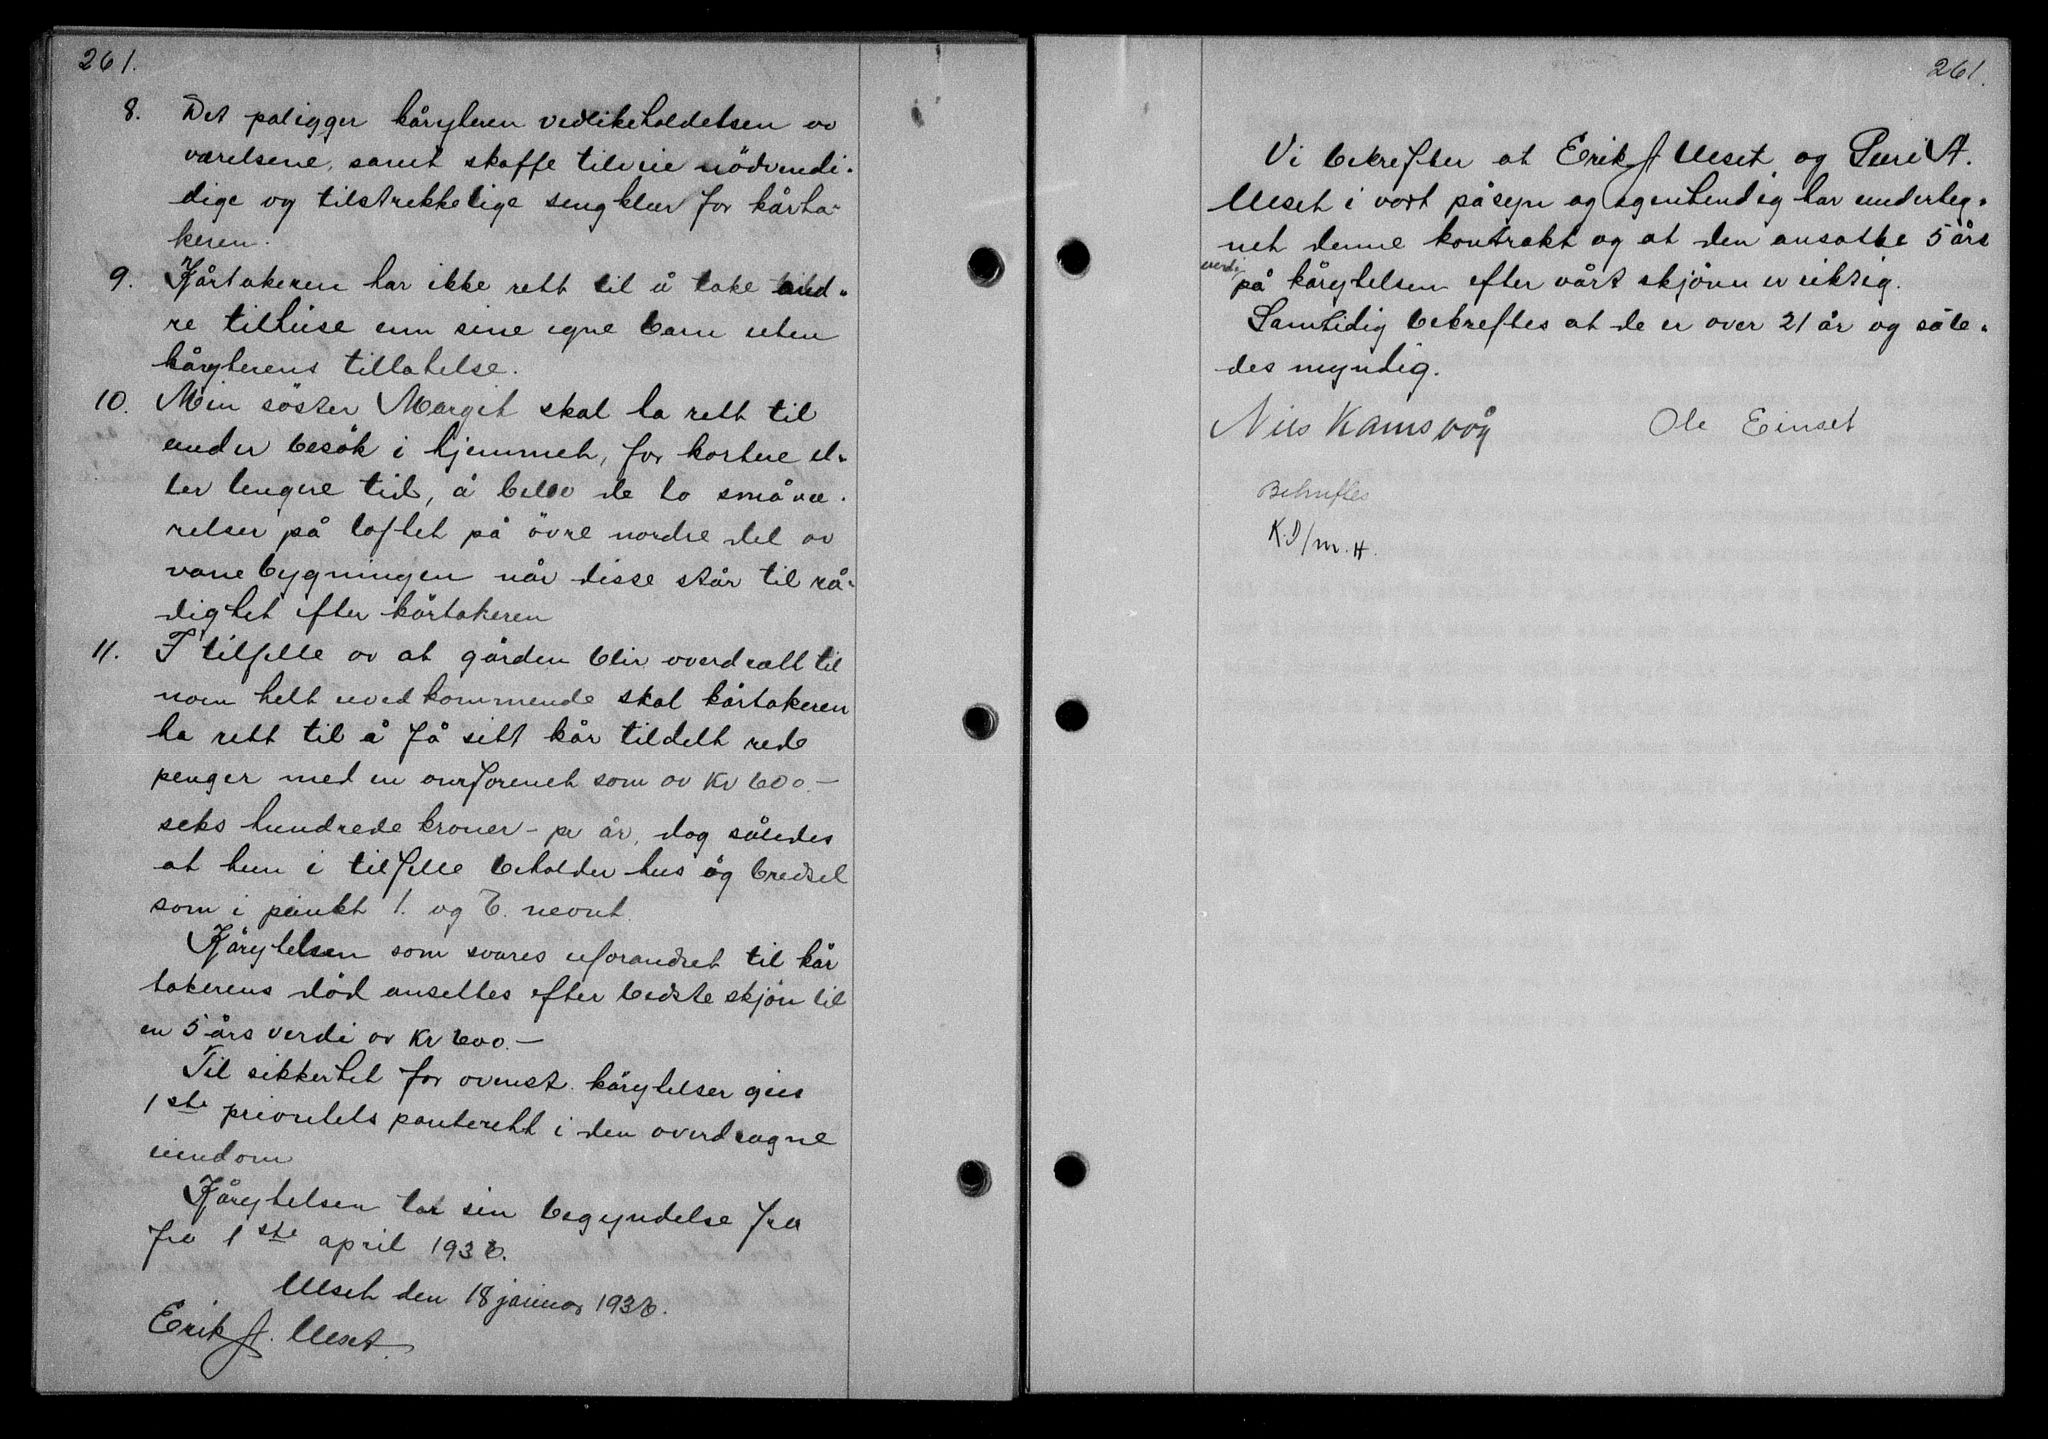 261.
8. Det paligger kåryteren vedlikeholdelsen av
værelsene, samt skaffe tilveie nödvendi-
dige og tilstrekkelige sengklær for kårta-
keren.
9. Kårtakeren har ikke rett til å take and-
re tilhuse enn sine egne barn uten
kåryterens tillatelse.
10. Min söster Margit skal ha rett til
under besök i hjemmet, for kortere el-
ler lengere tid, å bebo de to små væ-
relser på loftet på övre nordre del av
vanebygningen når disse står til rå-
dighet efter kårtakeren
11. I tilfelle av at gården blir overdratt til
noen helt uvedkommende skal kårtakeren
ha rett til å få sitt kår tildelt rede
penger med en omforenet som av Kr 600.-
seks hundrede kroner - pr år, dog således
at hun i tilfelle beholder hus og bredsel
som i punkt 1. og 6. nevnt.
Kårytelsen som svares uforandret til kår
takerens död ansettes efter bedste skjön til
en 5 års verdi av Kr 600.-
Til sikkerhet for ovenst. kårytelser gies
1ste prioritets panterett i den overdragne
eiendom
Kårytelsen tar sin begyndelse fra
fra 1ste april 1936.
Uset den 18 januar 1936.
Erik J. Uset.
261.
Vi bekrefter at Erik J Uset og Guri A.
Uset i vort påsyn og egenhendig har underteg-
net denne kontrakt og at den ansatte 5 års
verdi
på kårytelsen efter vårt skjönn er riktig.
Samtidig bekreftes at de er over 21 år og såle-
des myndig.
Nils Kamsvåg Ole Einset
Bekreftes
K.D/m.H.